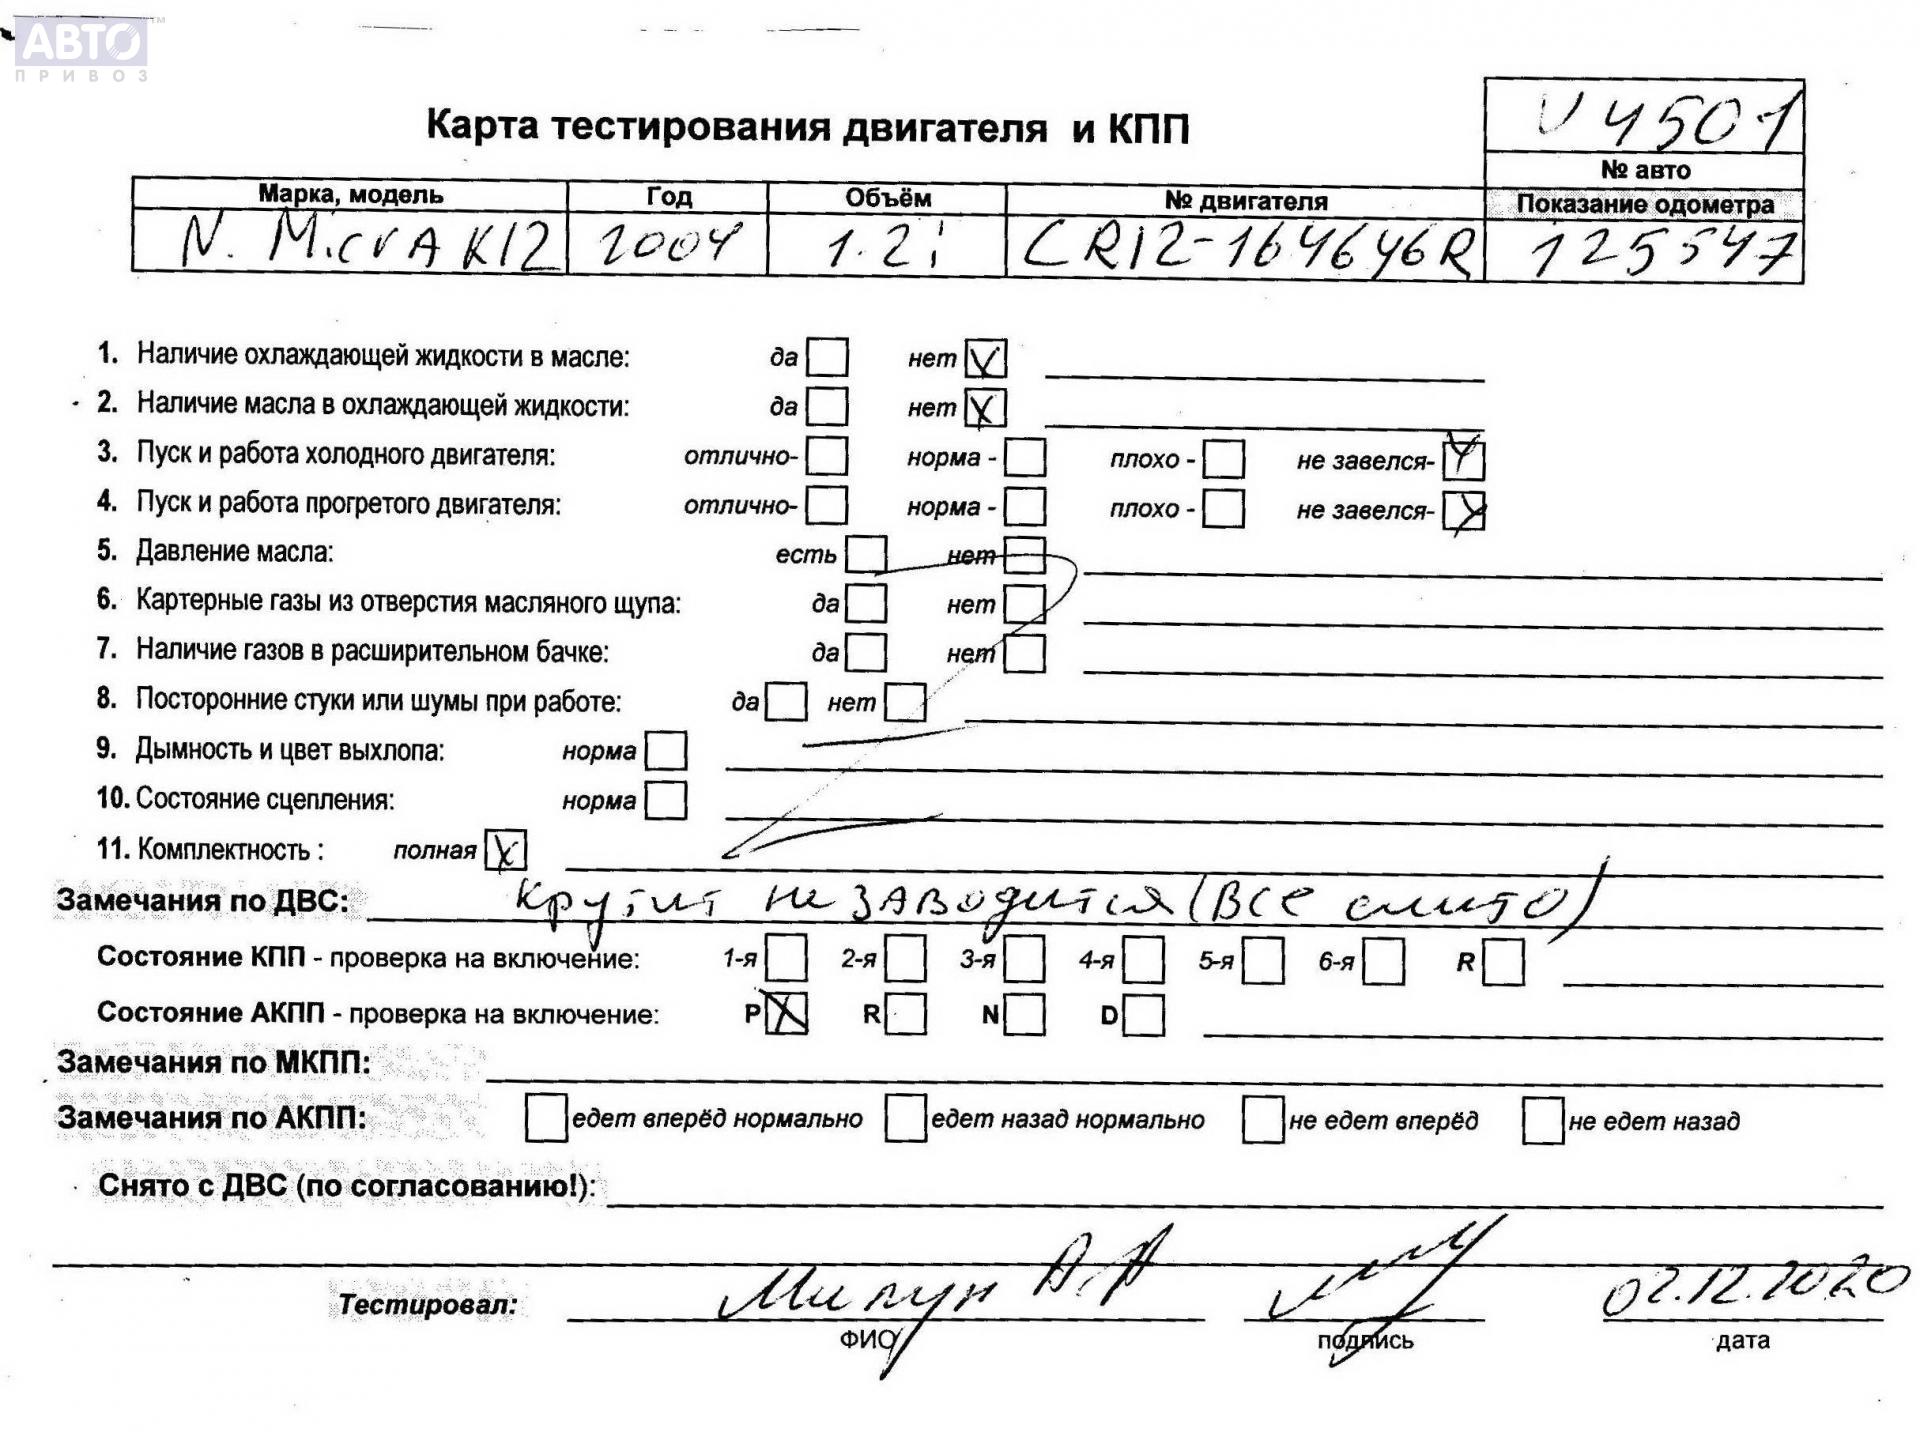 АВТО™
ПРИВОЗ
V4501
Карта тестирования двигателя и КПП
№ авто
Марка, модель Год Объём № двигателя Показание одометра
N. MicrA K12 2004 1.2i CR12-164646R 125547
1. Наличие охлаждающей жидкости в масле: да нет
2. Наличие масла в охлаждающей жидкости: да нет
3. Пуск и работа холодного двигателя: отлично- норма - плохо - не завелся-
4. Пуск и работа прогретого двигателя: отлично- норма - плохо - не завелся-
5. Давление масла: есть нет
6. Картерные газы из отверстия масляного щупа: да нет
7. Наличие газов в расширительном бачке: да нет
8. Посторонние стуки или шумы при работе: да нет
9. Дымность и цвет выхлопа: норма
10. Состояние сцепления: норма
11. Комплектность : полная
Замечания по ДВС: крутит не заводится (все слито)
Состояние КПП - проверка на включение: 1-я 2-я 3-я 4-я 5-я 6-я R
Состояние АКПП - проверка на включение: P R N D
Замечания по МКПП:
Замечания по АКПП: едет вперёд нормально едет назад нормально не едет вперёд не едет назад
Снято с ДВС (по согласованию!):
Тестировал: А.А 02.12.2020
ФИО подпись дата